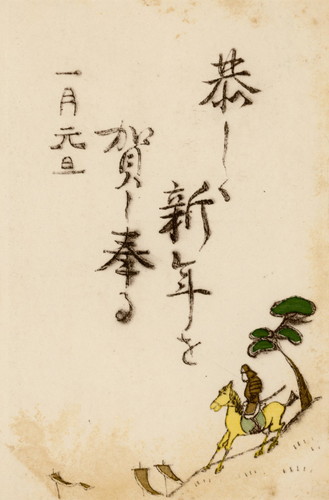 恭しく
新年を
賀し奉る
一月元旦